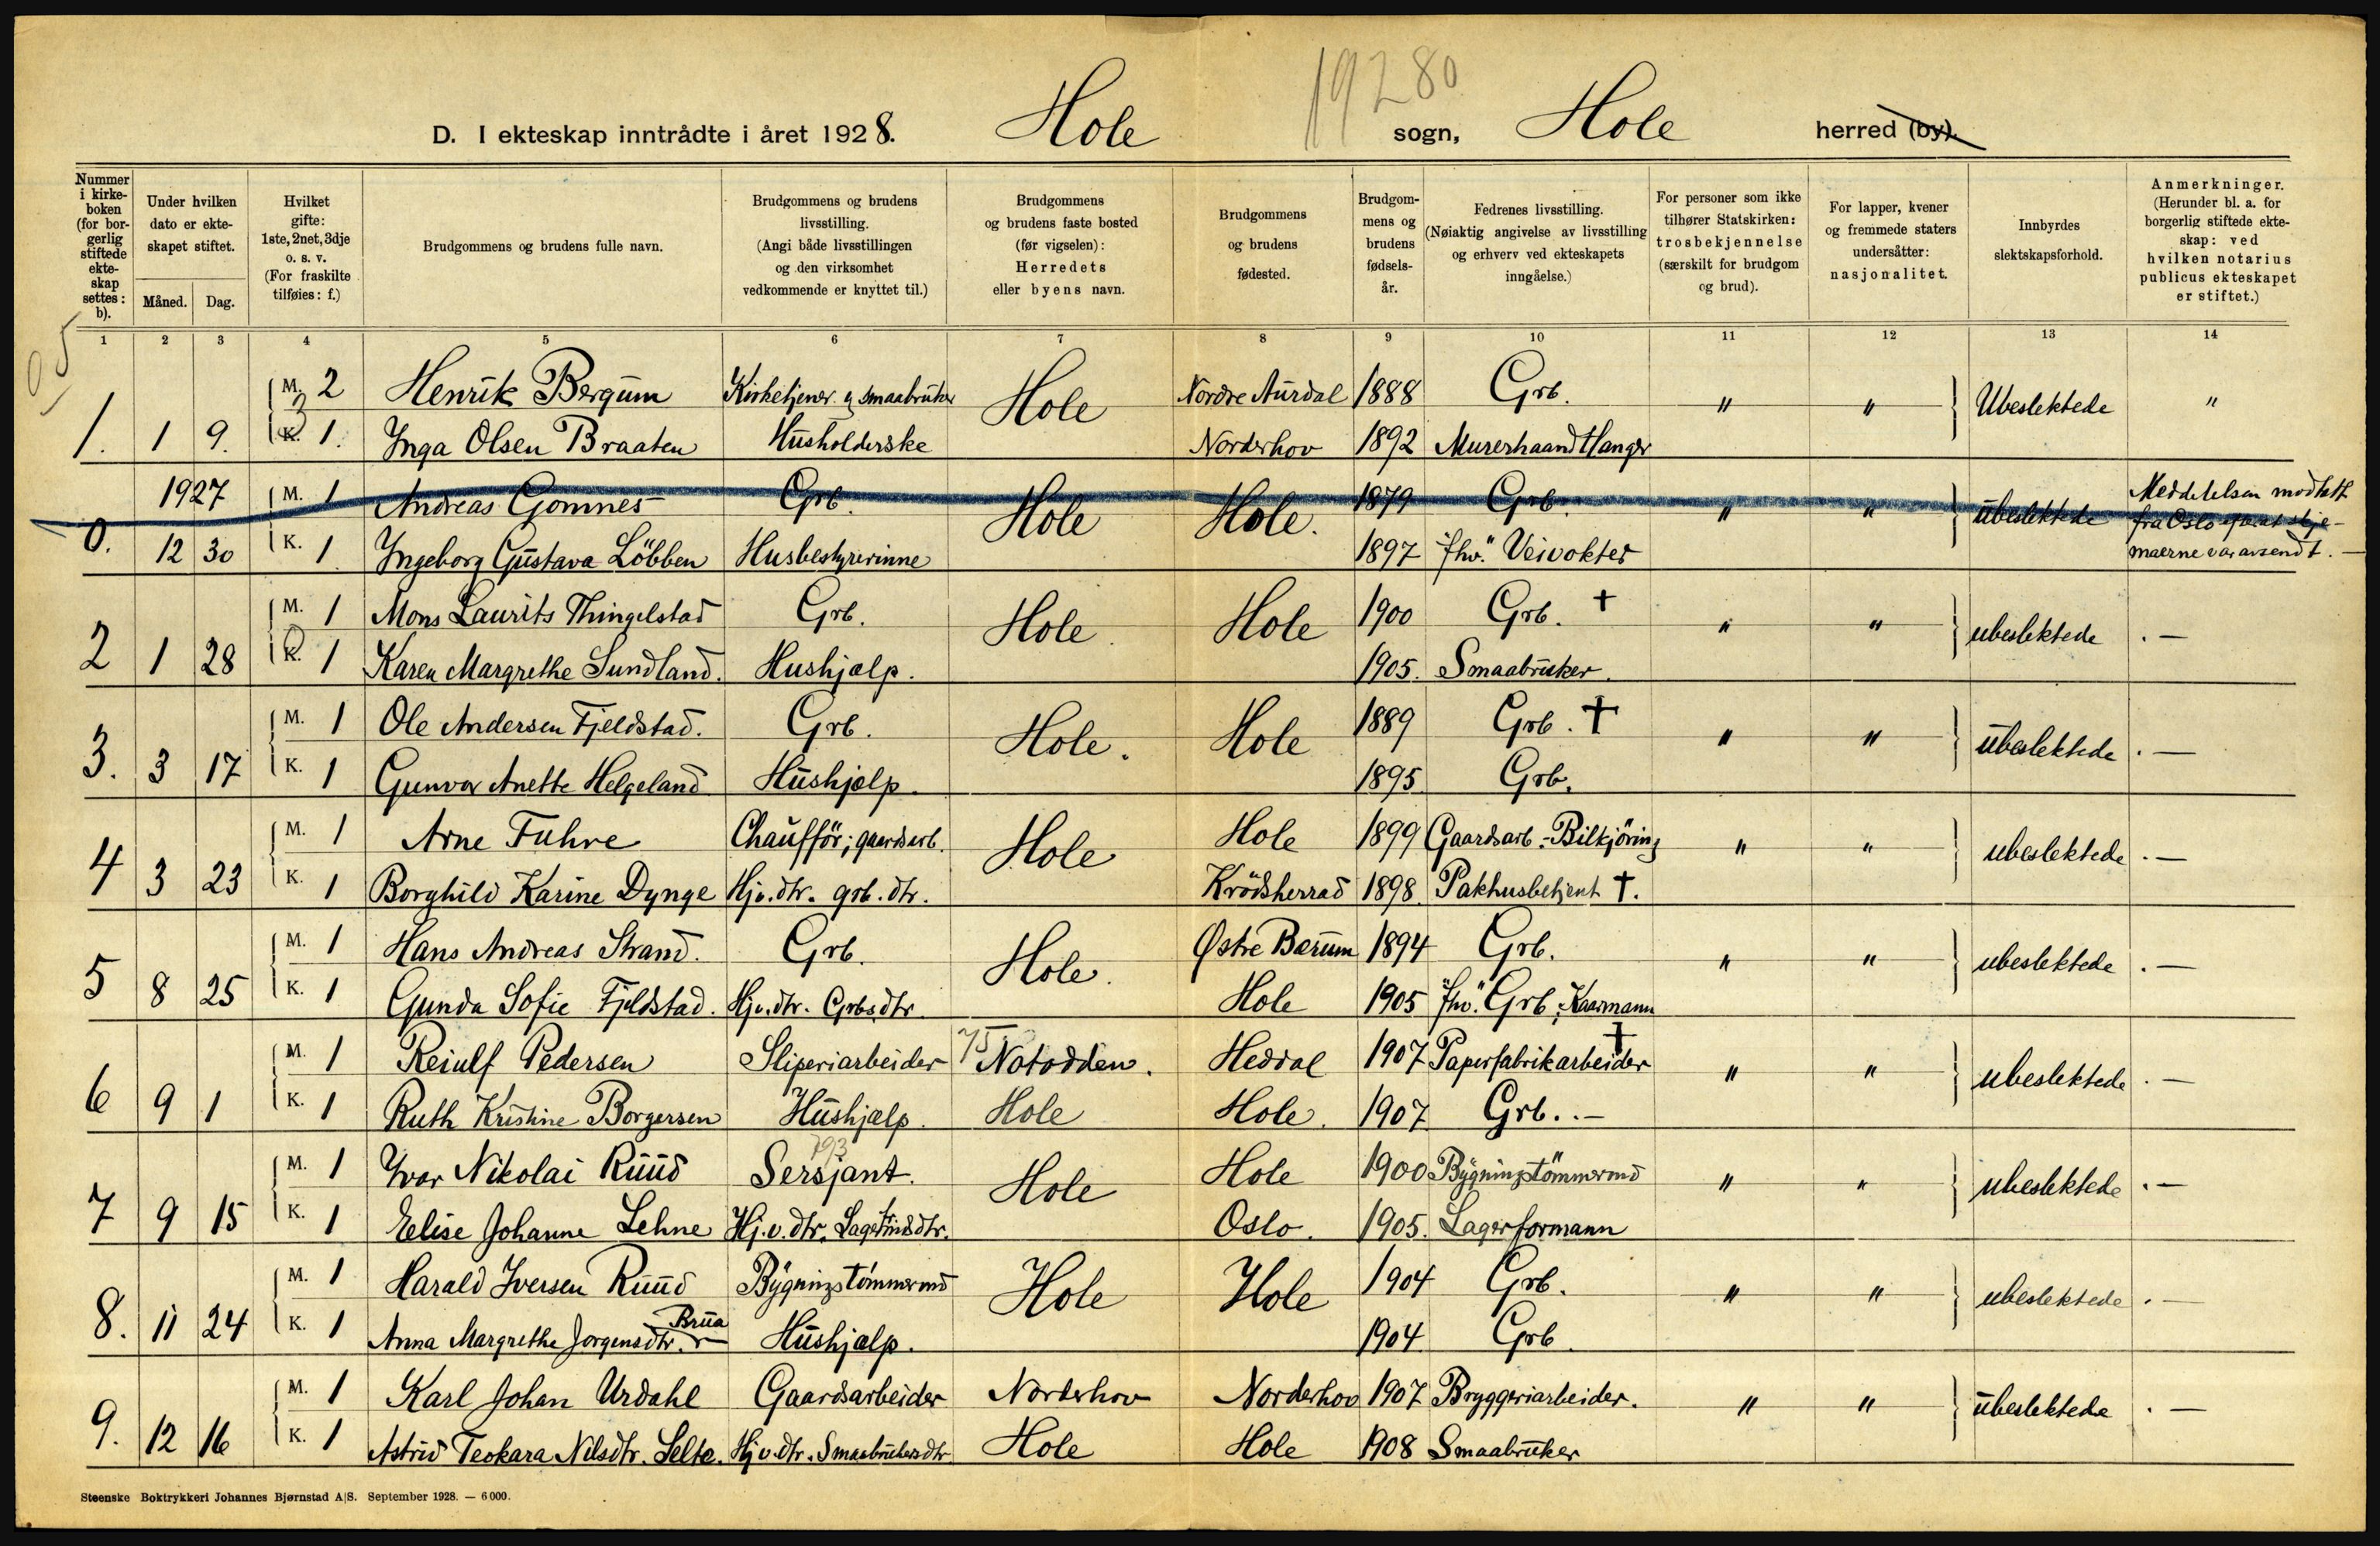 19280
D. I ekteskap inntrådte i året 1928. Hole sogn, Hole herred (by).
Nummer i kirkeboken (for borgerlig stiftede ekteskap settes: b).
Under hvilken dato er ekteskapet stiftet.
Måned. Dag.
Hvilket gifte: 1ste, 2net, 3dje o. s. v. (For fraskilte tilføies: f.)
Brudgommens og brudens fulle navn.
Brudgommens og brudens livsstilling. (Angi både livsstillingen og den virksomhet vedkommende er knyttet til.)
Brudgommens og brudens faste bosted (før vigselen): Herredets eller byens navn.
Brudgommens og brudens fødested.
Brudgommens og brudens fødselsår.
Fedrenes livsstilling. (Nøiaktig angivelse av livsstilling og erhverv ved ekteskapets inngåelse.)
For personer som ikke tilhører Statskirken: trosbekjennelse (særskilt for brudgom og brud).
For lapper, kvener og fremmede staters undersåtter: nasjonalitet.
Innbyrdes slektskapsforhold.
Anmerkninger. (Herunder bl. a. for borgerlig stiftede ekteskap: ved hvilken notarius publicus ekteskapet er stiftet.)
1 2 3 4 5 6 7 8 9 10 11 12 13 14
M. 2 Henrik Bergum Kirketjener og smaabruker Hole Nordre Aurdal 1888 Grb. " " Ubeslektede "
1. 1 9. K. 1. Inga Olsen Braaten Husholderske Norderhov 1892 Murerhaandtlanger
1927 M. 1 Andreas Gomnes Grb. Hole Hole. 1879 Grb. " " ubeslektede Meddelelsen modtatt fra Oslo efterat skje-
0. 12 30 K. 1 Ingeborg Gustava Löbben Husbestyrerinne 1897 "fhv." Veivokter maerne var avsendt. —
M. 1 Mons Laurits Thingelstad Grb. Hole. Hole 1900 Grb. † " " ubeslektede . —
2 1 28 K. 1 Karen Margrethe Sundland. Hushjælp. 1905. Smaabruker.
M. 1 Ole Andersen Fjeldstad. Grb. Hole. Hole 1889 Grb. † " " ubeslektede . —
3. 3 17 K. 1 Gunvor Anette Helgeland Hushjælp. 1895 Grb.
M. 1 Arne Fuhre Chaufför; gaardsarb. Hole Hole 1899 Gaardsarb.-Bilkjöring " " ubeslektede . —
4 3 23 K. 1 Borghild Karine Dynge Hjv. dtr. grb. dtr. Krödsherrad 1898 Pakhusbetjent †.
M. 1 Hans Andreas Strand. Grb. Hole. Østre Bærum 1894 Grb. " " ubeslektede . —
5 8 25 K. 1 Gunda Sofie Fjeldstad. Hjv. dtr. Grbsdtr. Hole 1905 "fhv." Grb; Kaarmann
M. 1 Reiulf Pedersen Sliperiarbeider Notodden. Heddal 1907 Paperfabrikarbeider † " " ubeslektede . —
6 9 1 K. 1 Ruth Kristine Borgersen Hushjælp. Hole Hole. 1907 Grb. . —
M. 1 Ivar Nikolai Ruud Sersjant. Hole Hole 1900 Bygningstömmermd " " ubeslektede . —
7 9 15 K. 1 Elise Johanne Lehne Hj. v. dtr. Lagerfmdsdtr. Oslo. 1905. Lagerformann
M. 1 Harald Iversen Ruud Bygningstömmermd Hole Hole 1904 Grb. " " ubeslektede . —
8. 11 24 K. 1 Anna Margrethe Jorgensdtr. Brua Hushjælp. 1904. Grb.
M. 1 Karl Johan Urdahl Gaardsarbeider Norderhov Norderhov 1907 Bryggeriarbeider. " " ubeslektede . —
9. 12 16 K. 1 Astrid Teokara Nilsdtr. Selte. Hj v. dtr. Smaabrukersdtr Hole Hole 1908 Smaabruker
Steenske Boktrykkeri Johannes Bjørnstad A|S. September 1928. — 6000.